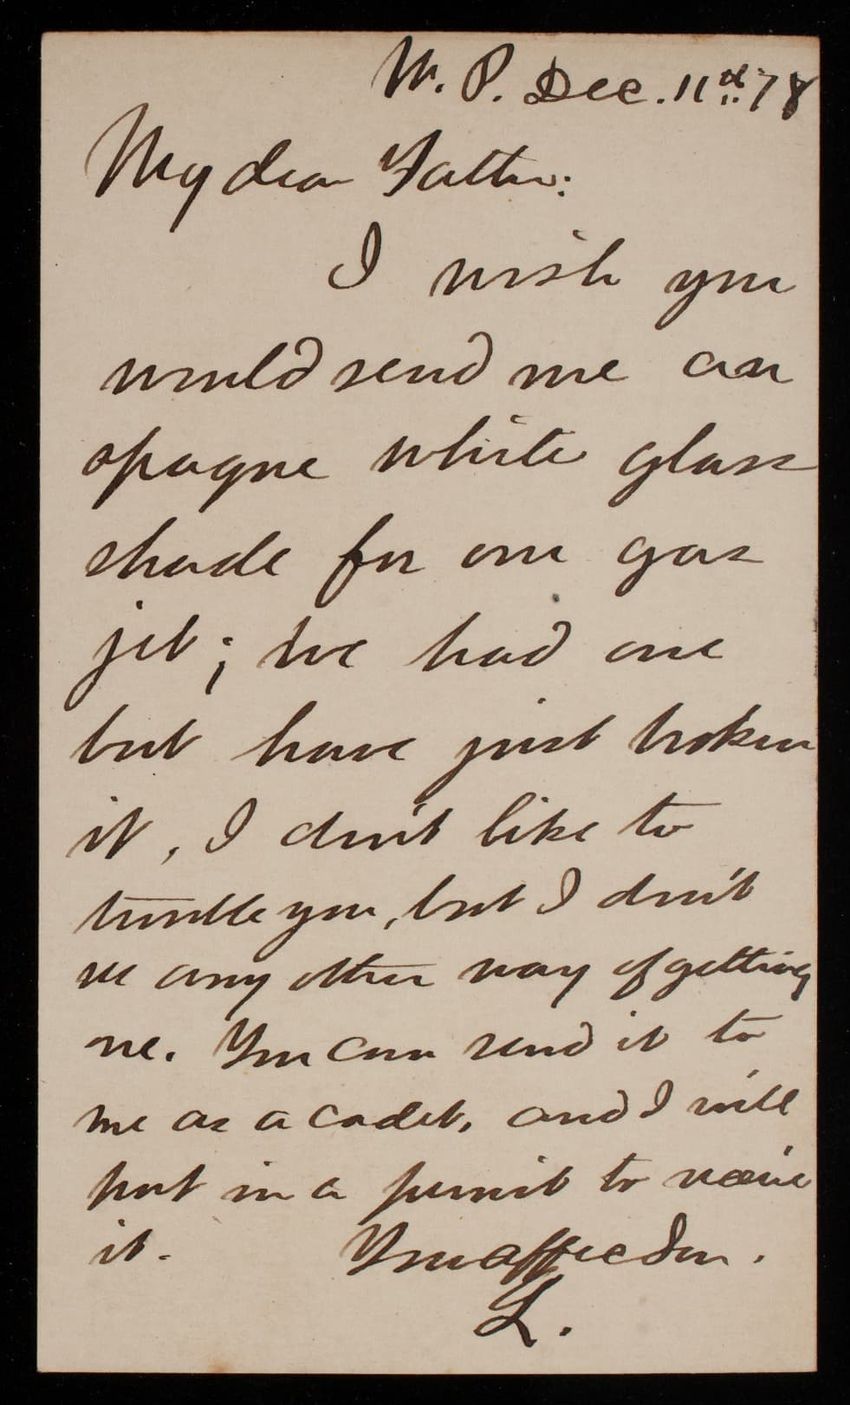 W. P. Dec. 11th 78
My dear Father:
I wish you
would send me an
opaque white glass
shade for our gas
jet; we had one
but have just broken
it, I don't like to
trouble you, but I don't
see any other way of getting
one. You can send it to
me as a cadet, and I will
put in a permit to receive
it. Your affec Son.
L.